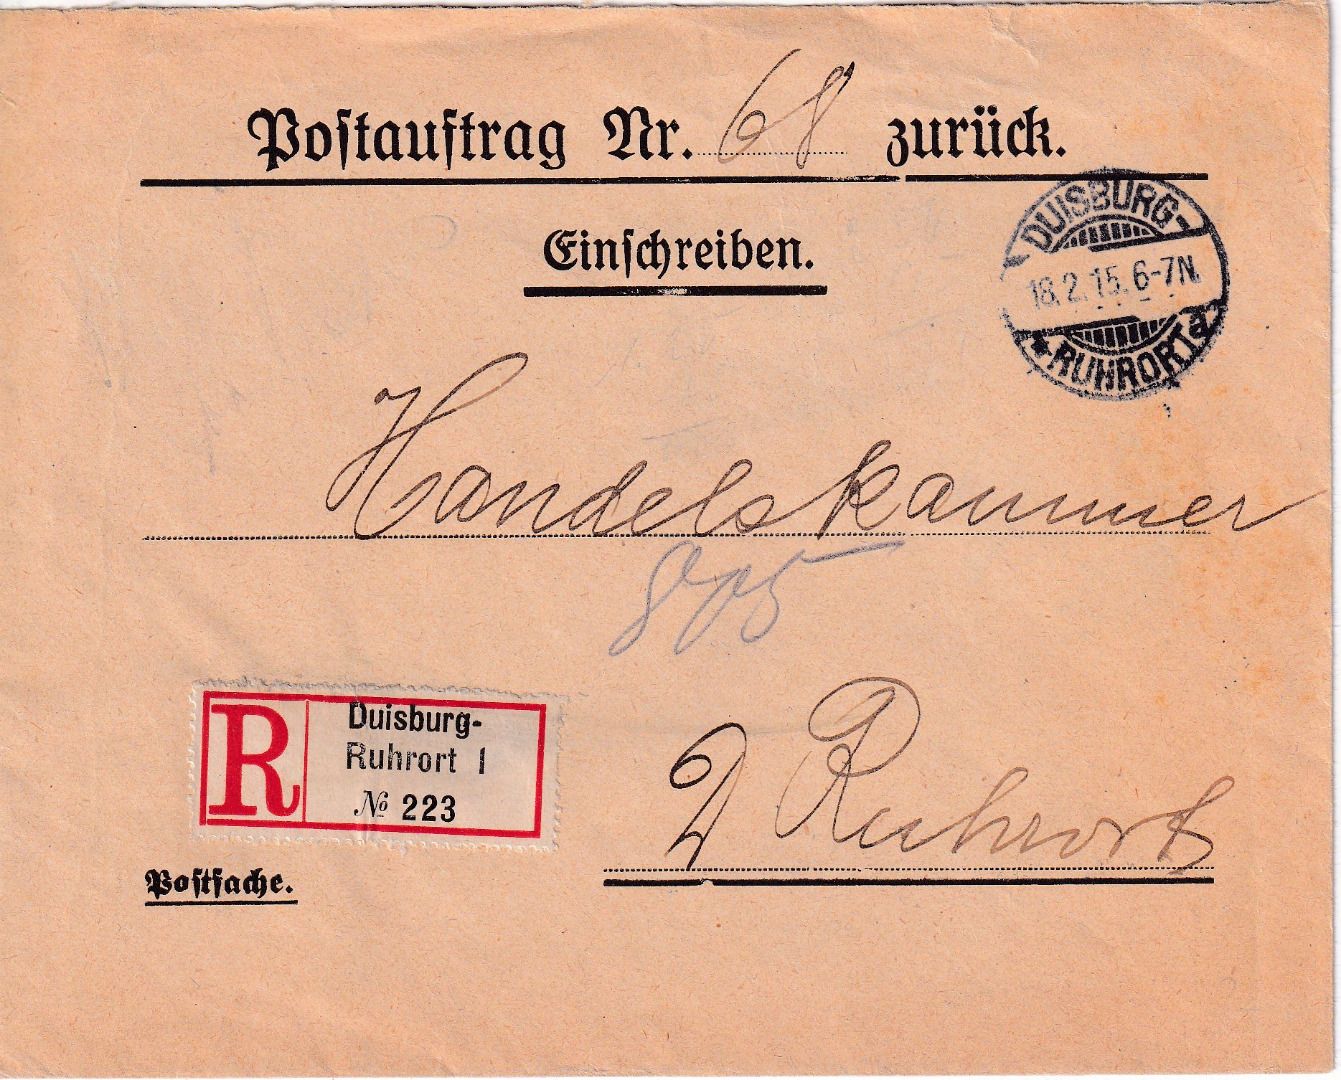 Postauftrag Nr. 68 zurück.
Einschreiben.
DUISBURG-
18.2.15. 6-7N.
* RUHRORT a
Handelskammer
R
Duisburg-
Ruhrort 1
№ 223
D Ruhrort
Postsache.